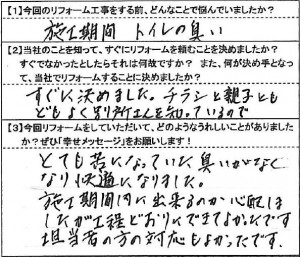 【1】今回のリフォーム工事をする前、どんなことで悩んでいましたか?
施工期間 トイレの臭い
【2】当社のことを知って、すぐにリフォームを頼むことを決めましたか?
すぐでなかったとしたらそれは何故ですか? また、何が決め手となっ
て、当社でリフォームすることに決めましたか?
すぐに決めました。チラシと親子とも
どもよく 別所さんを知っているので
【3】今回リフォームをしていただいて、どのようなうれしいことがありました
か?ぜひ「幸せメッセージ」をお願いします!
とても苦になっていた臭いがなく
なり快適になりました。
施工期間内に出来るのか心配しま
したが工程どおりにできてよかったです
担当者の方の対応もよかったです.